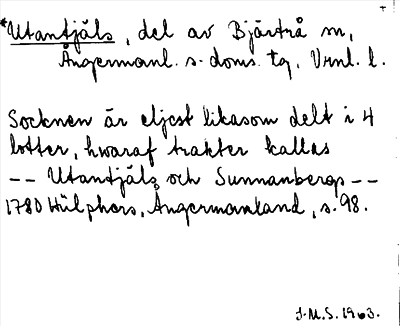 *Utantjäls, del av Bjärtrå sn,
Ångermanl. s. doms. tg, Vrnl. l.
Socknen är eljest likasom delt i 4
lotter, hwaraf trakter kallas
-- Utantjäls och Sunnanbergs --
1780 Hülphers, Ångermanland, s. 98.
J.M.S. 1963.